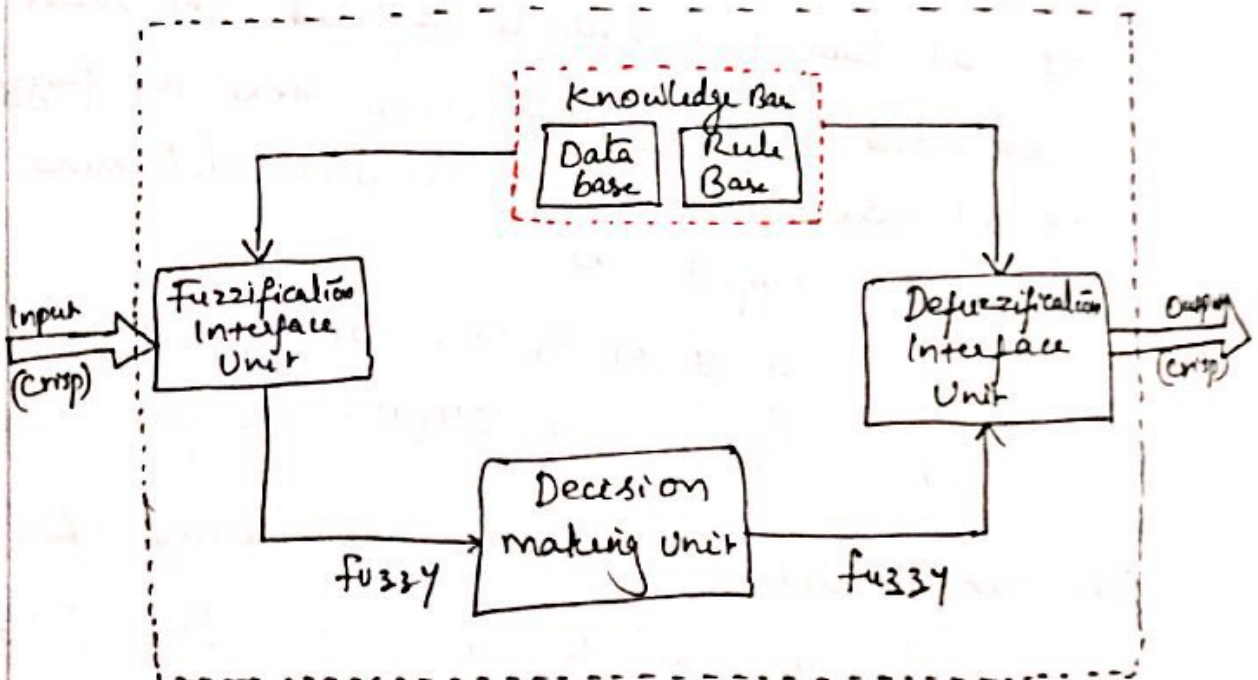 Knowledge Base
Data
base
Rule
Base
Fuzzification
Interface
Unit
Input
(Crisp)
Defuzzification
Interface
Unit
Output
(Crisp)
Decision
making Unit
fuzzy
fuzzy